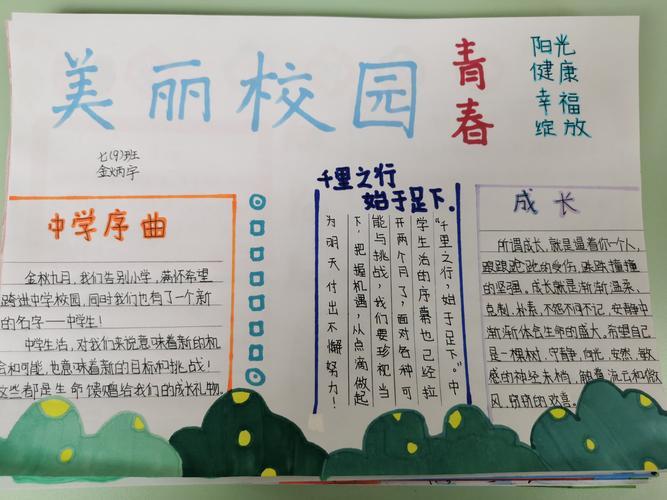 美丽校园
青春
阳光
健康
幸福
绽放
七(9)班
金炳宇
中学序曲
金秋九月，我们告别小学，满怀希望
跨进中学校园，同时我们也有了一个新
的名字——中学生！
中学生活，对我们来说意味着新的机
会和可能，也意味着新的目标和挑战！
这些都是生命馈赠给我们的成长礼物。
千里之行
始于足下.
“千里之行，始于足下。”中
学生活的序幕也已经拉
开两个月了，面对各种可
能与挑战，我们要珍视当
下，把握机遇，从点滴做起
为明天付出不懈努力！
成长
所谓成长，就是逼着你一个人，
踉踉跄跄的受伤，跌跌撞撞
的坚强。成长就是渐渐温柔，
克制，朴素，不怨不问不记，安静中
渐渐体会生命的盛大。希望自己
是一棵树，守静，向光，安然，敏
感的神经末梢，触着流云和微
风，窃窃的欢喜。